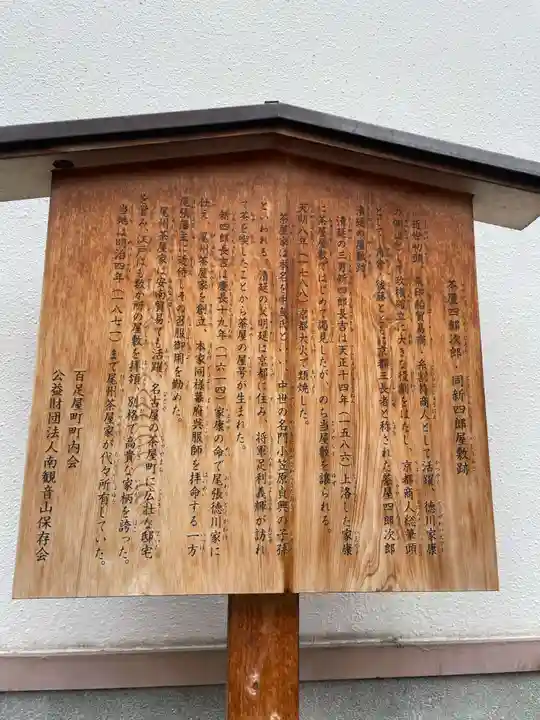 茶屋四郎次郎・同新四郎屋敷跡
近世初頭、朱印船貿易商、糸割符商人として活躍、徳川家康
の側近として政権樹立に大きな役割をはたし、京都商人総筆頭
として、角倉、後藤とともに京都三長者と称された茶屋四郎次郎
清延の屋敷跡。
清延の三男新四郎長吉は天正十四年（一五八六）上洛した家康
に茶屋屋敷ではじめて謁見したが、のち当屋敷を譲られる。
天明八年（一七八八）京都大火で類焼した。
茶屋家は本名を中島氏といい、中世の名門小笠原貞興の子孫
といわれる。清延の父明延は京都に住み、将軍足利義輝が訪れ
て茶を喫したことから茶屋の屋号が生まれた。
新四郎長吉は慶長十九年（一六一四）家康の命で尾張徳川家に
仕え、尾州茶屋家を創立、本家同様幕府呉服師を拝命する一方
尾張藩主に近侍しその呉服御用を勤めた。
尾州茶屋家は安南貿易でも活躍、名古屋の茶屋町に広壮な邸宅
を営み、江戸にも数か所の屋敷を拝領、別格で高貴な家柄を誇った。
当地は明治四年（一八七一）まで尾州茶屋家が代々所有していた。
百足屋町町内会
公益財団法人南観音山保存会